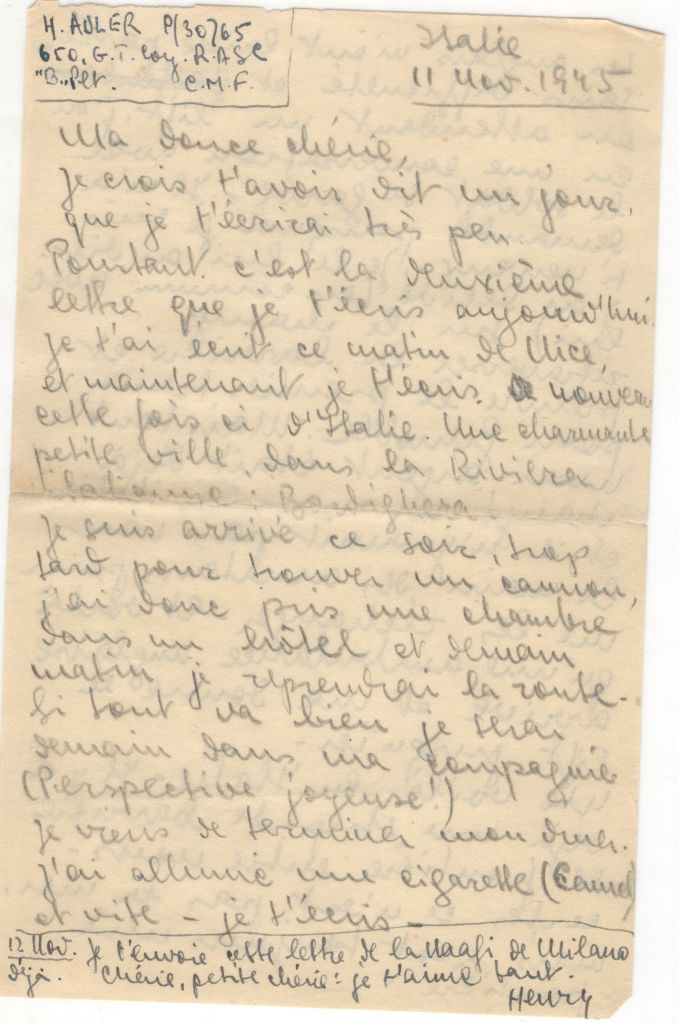 H. ADLER P/30765
650, G.T. Coy. R.A.S.C
"B" Plt. C.M.F.
Italie
11 Nov. 1945
Ma douce chérie,
je crois t'avoir dit un jour,
que je t'écrirai très peu.
Pourtant c'est la deuxième
lettre que je t'écris aujourd'hui.
je t'ai écrit ce matin de Nice,
et maintenant je t'écris de nouveau
cette fois ci d'Italie. Une charmante
petite ville, dans la Riviera
italienne : Bordighera.
je suis arrivé ce soir, trop
tard pour trouver un camion,
j'ai donc pris une chambre
dans un hôtel et demain
matin je reprendrai la route.
Si tout va bien je serai
demain dans ma compagnie.
(Perspective joyeuse!)
je viens de terminer mon diner.
j'ai allumé une cigarette (Camel)
et vite – je t'écris –
12 Nov. je t'envoie cette lettre de la Naafi de Milano
déjà. Chérie, petite chérie : je t'aime tant.
Henry